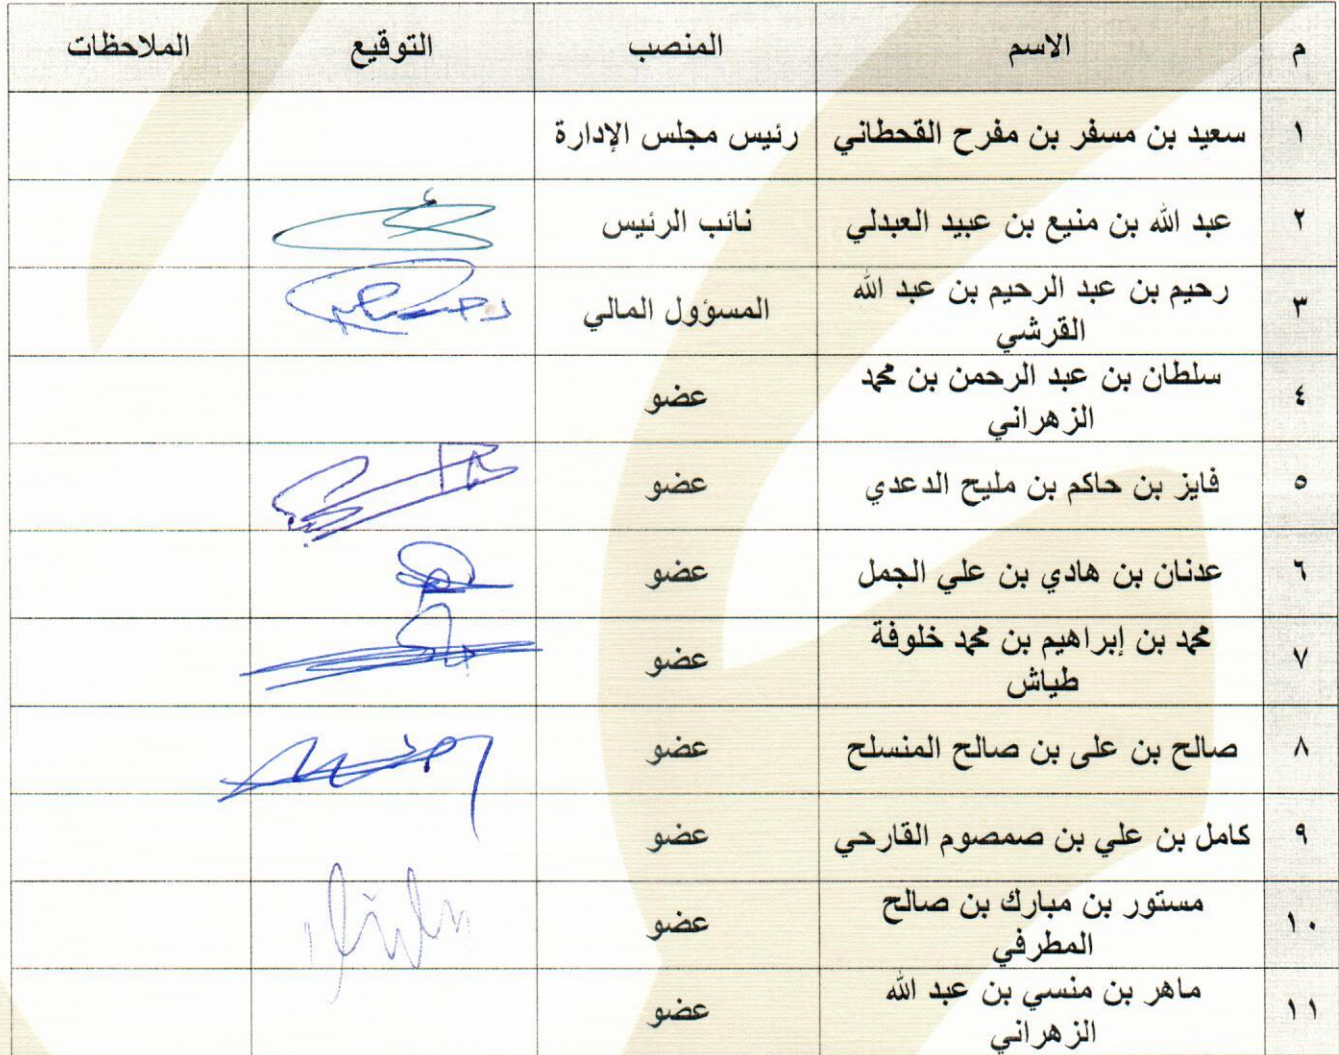 م الاسم المنصب التوقيع الملاحظات
١ سعيد بن مسفر بن مفرح القحطاني رئيس مجلس الإدارة
٢ عبد الله بن منيع بن عبيد العبدلي نائب الرئيس
٣ رحيم بن عبد الرحيم بن عبد الله المسؤول المالي
القرشي
٤ سلطان بن عبد الرحمن بن محمد عضو
الزهراني
٥ فايز بن حاكم بن مليح الدعدي عضو
٦ عدنان بن هادي بن علي الجمل عضو
٧ محمد بن إبراهيم بن محمد خلوفة عضو
طياش
٨ صالح بن على بن صالح المنسلح عضو
٩ كامل بن علي بن صمصوم القارحي عضو
١٠ مستور بن مبارك بن صالح عضو
المطرفي
١١ ماهر بن منسي بن عبد الله عضو
الزهراني